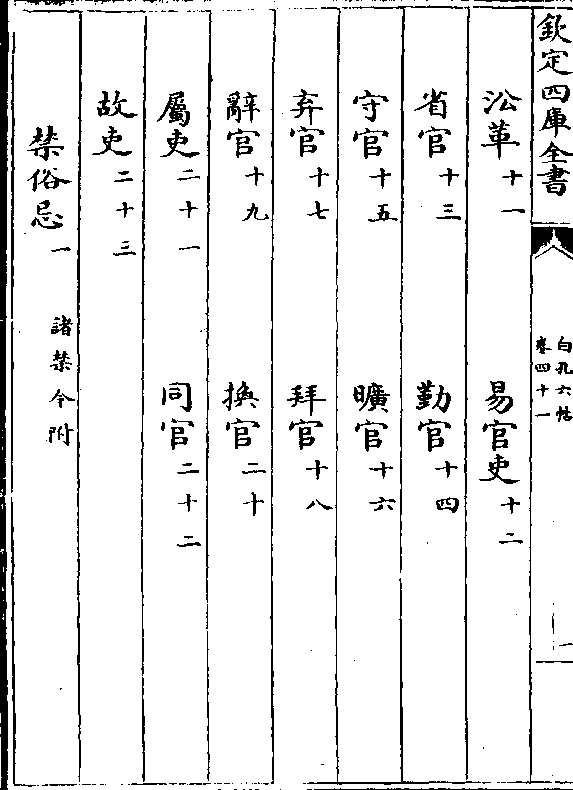 欽定四庫全書
白孔六帖
卷四十一
一
㳂革十一 易官吏十二
省官十三 勤官十四
守官十五 曠官十六
弃官十七 拜官十八
辭官十九 換官二十
屬吏二十一 同官二十二
故吏二十三
禁俗忌一 諸禁令附